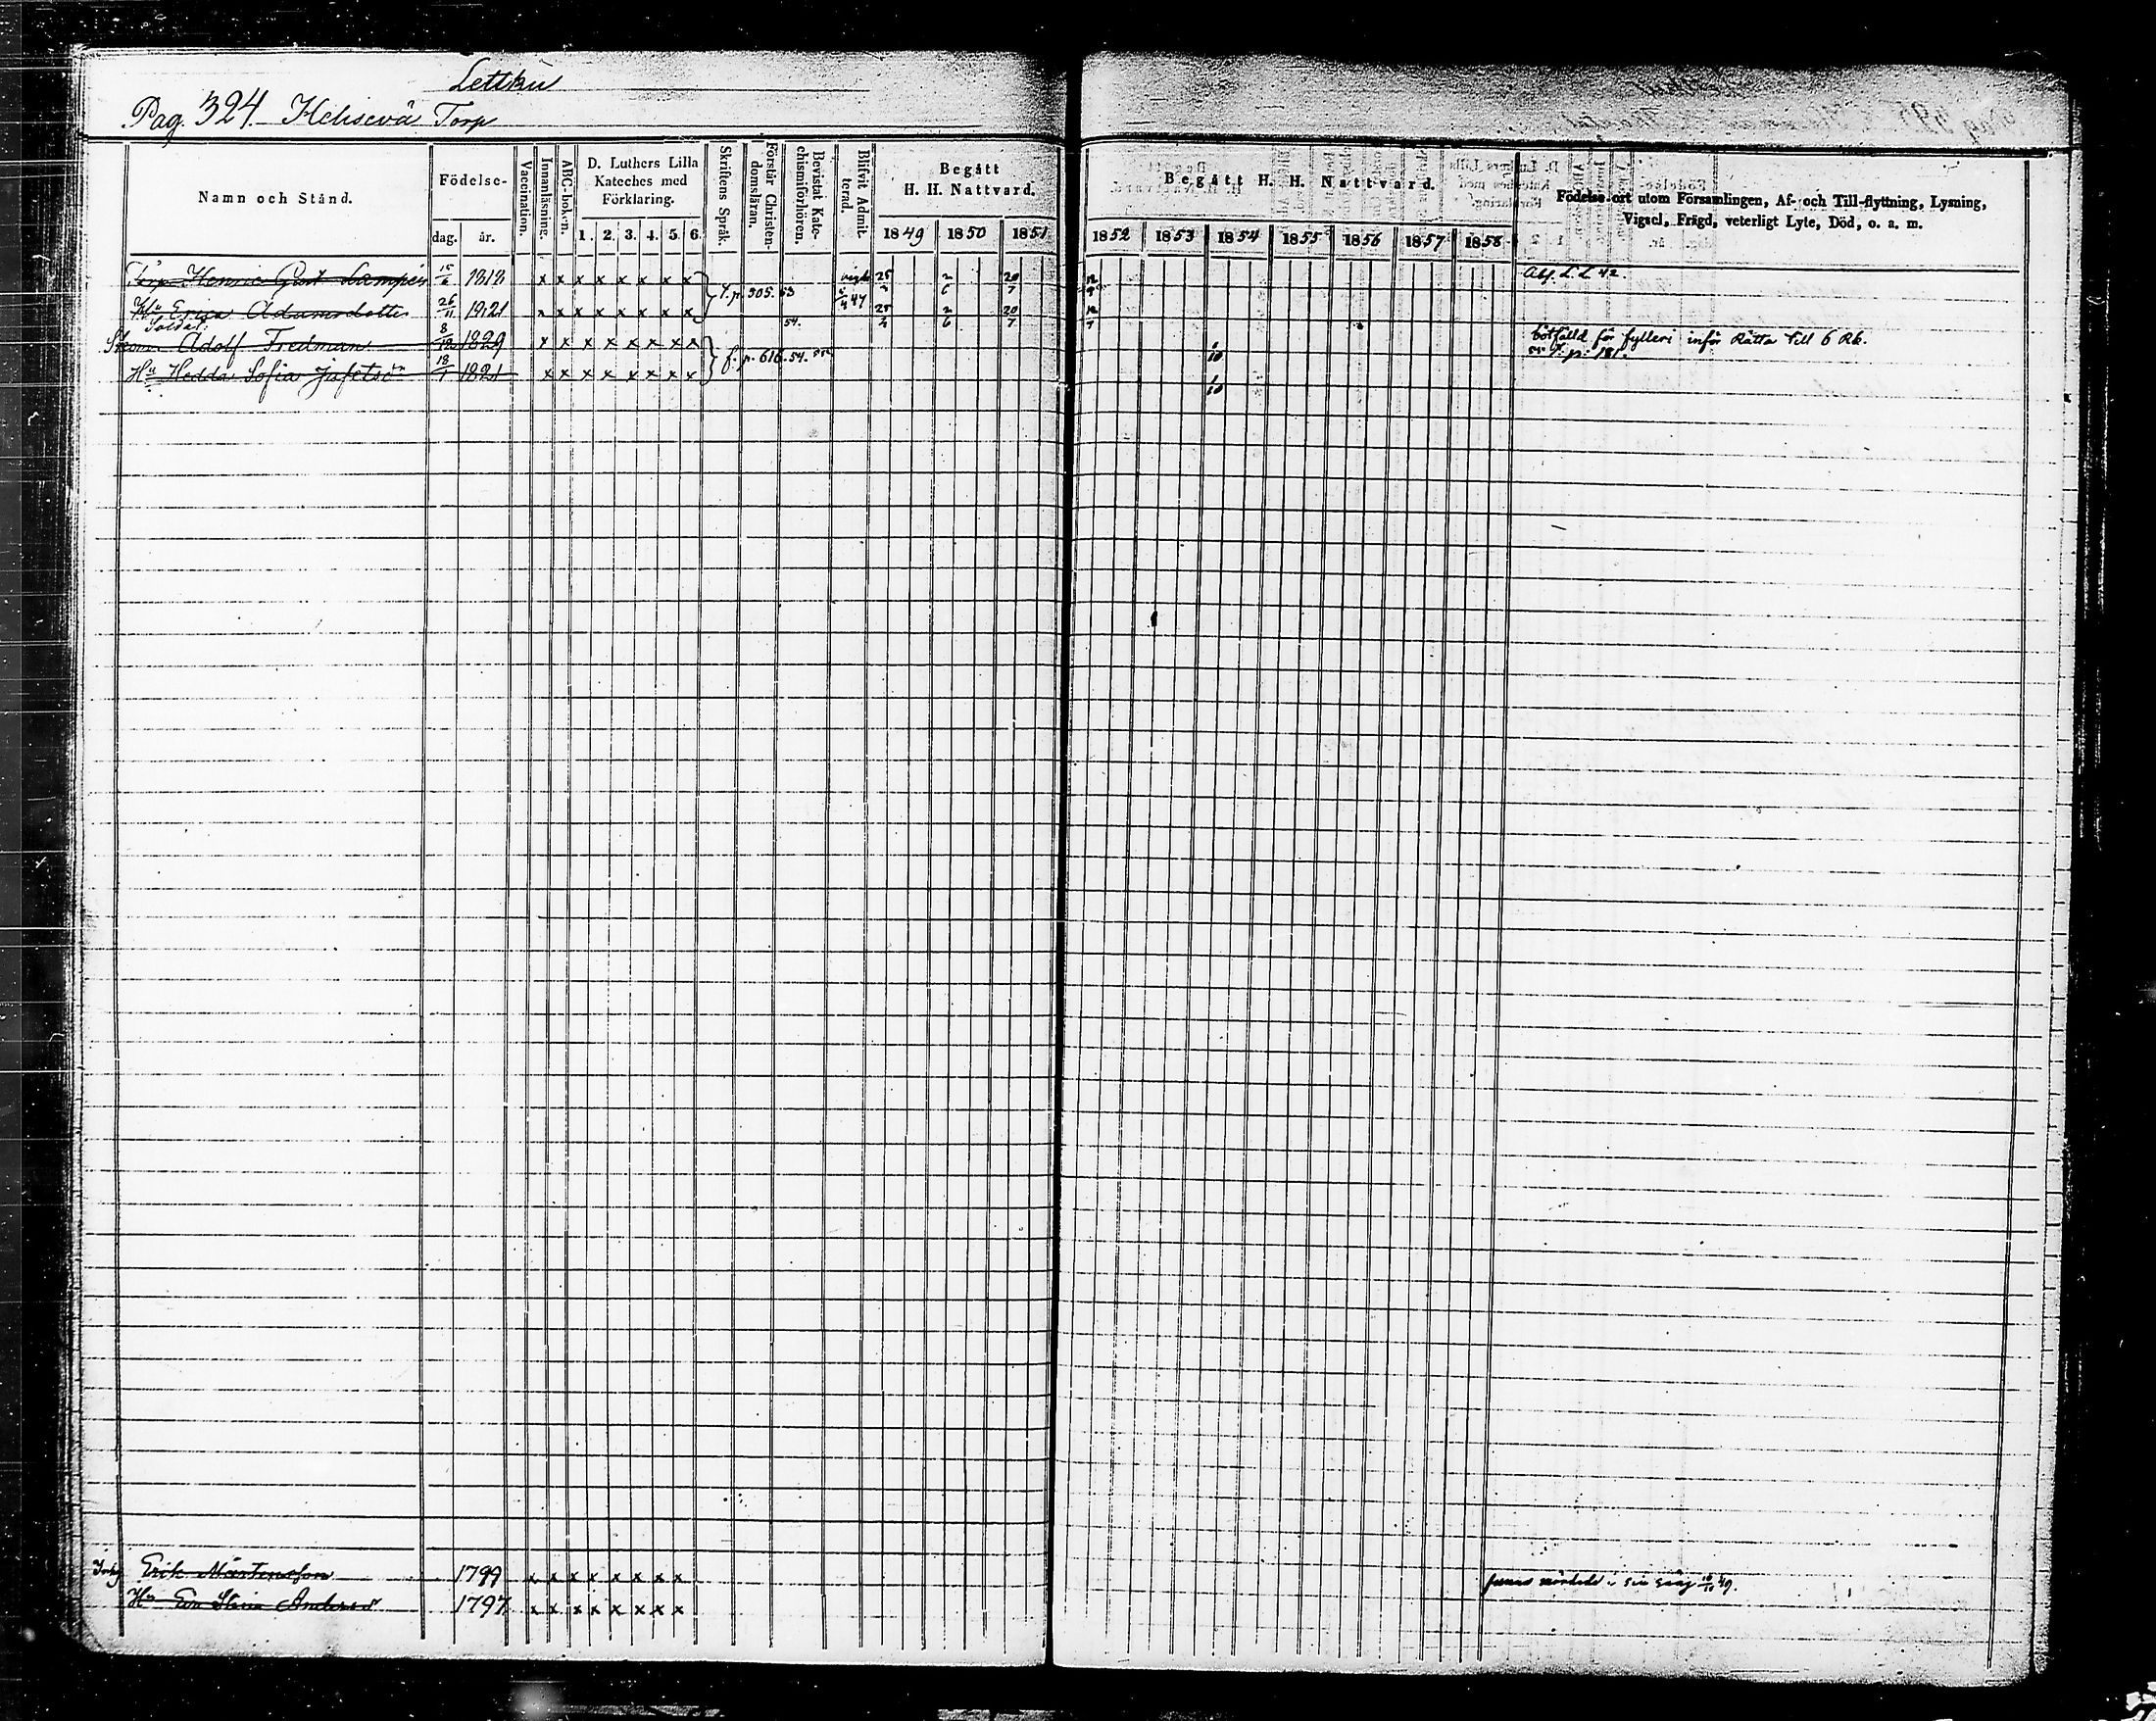 Lettku
Pag. 324. Torp
Namn och Stånd.
Födelse-
dag. år.
Vaccination.
Innanläsning.
ABC-boken.
D. Luthers Lilla
Kateches med
Förklaring.
1. 2. 3. 4. 5. 6.
Skriftens Språk.
Förstår Christen-
domsläran.
Bevistat Kate-
chismiförhören.
Blifvit Admit-
terad.
Begått
H. H. Nattvard.
1849 1850 1851
Begått H. H. Nattvard.
1852 1853 1854 1855 1856 1857 1858
Födelse-ort utom Församlingen, Af- och Till-flyttning, Lysning,
Vigsel, Frägd, veterligt Lyte, Död, o. a. m.
Henric Gust 15/6 1818 x x x x x x x x 25 2 20 12
T. p. 305. 53 4 47
Hu Erica Adamsdotter 26/11 1821 x x x x x x x x 25 2 20 12
Soldat 54.
Adolf Fredman 8/12 1829 x x x x x x x x bötfälld för fylleri inför Rätta till 6 Rb.
f. p. 616. 54. p. 181.
Hu Hedda Sofia 18/1 1821 x x x x x x x x 1/10
Erik Mårtensson 1799 x x x x x x x x
Hu Eva Stina Andersd 1797 x x x x x x x x